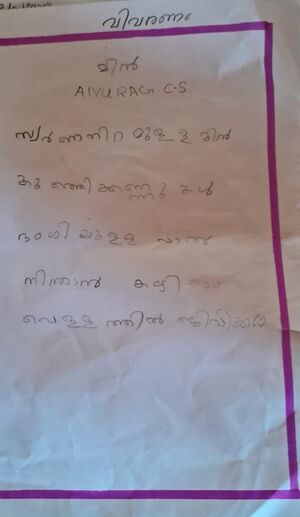 വിവരണം
മീൻ
ANURAG.C.S
സ്വർണനിറമുള്ള മീൻ
കുഞ്ഞിക്കണ്ണുകൾ
ഭംഗിയുള്ള വാൽ
നീന്താൻ കഴിയും
വെള്ളത്തിൽ ജീവിക്കും